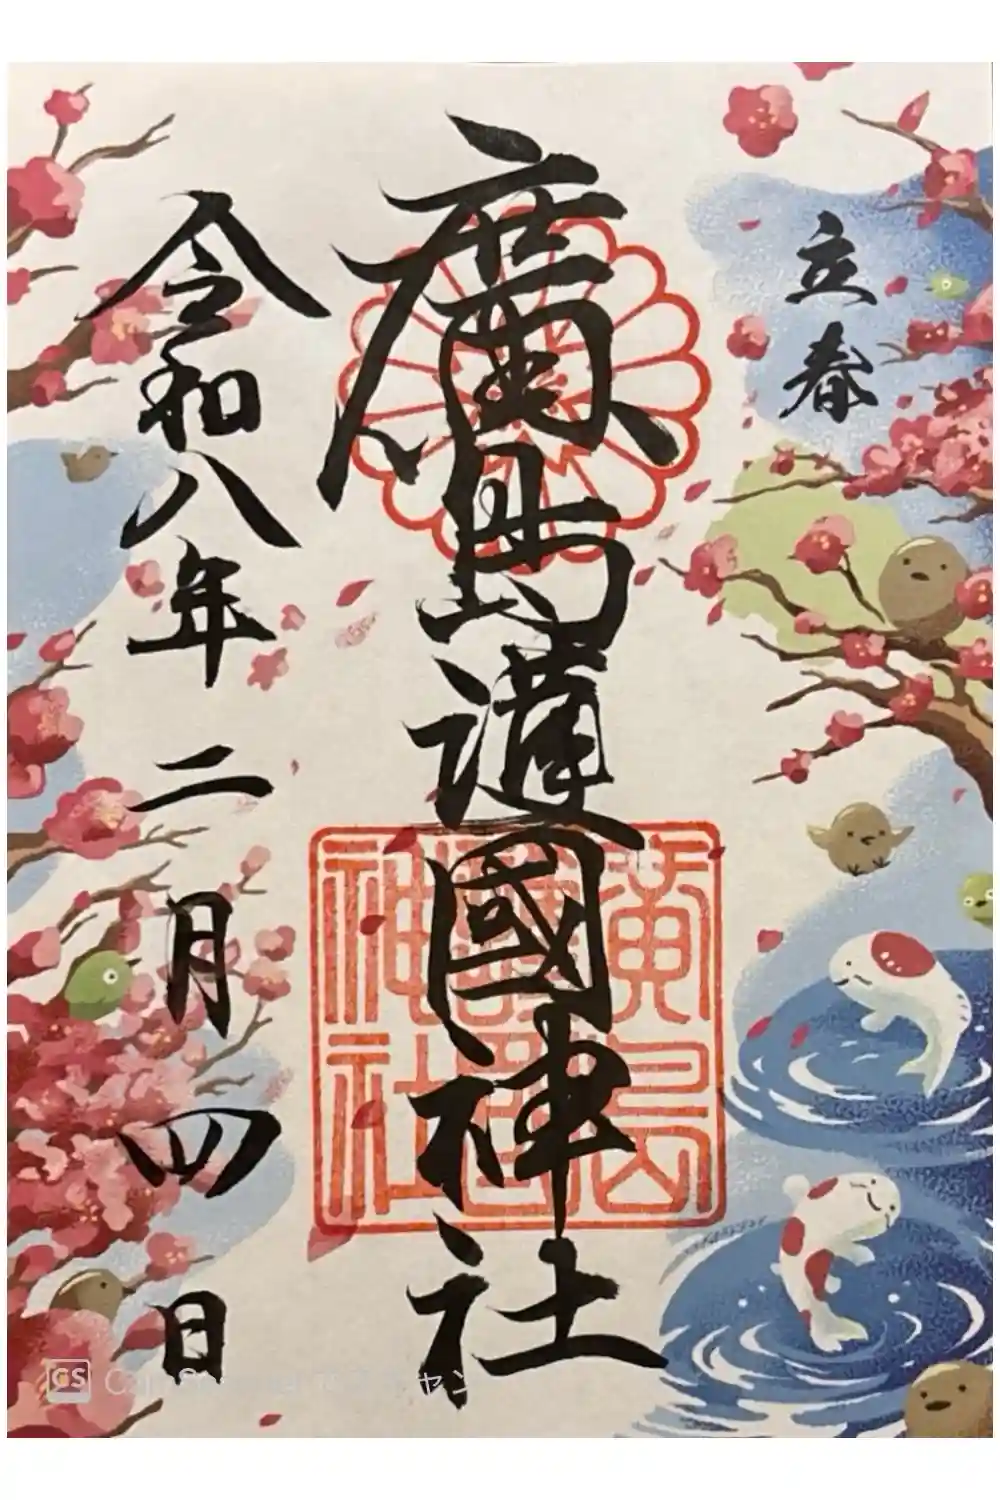 立春
廣島護國神社
廣島
護國
神社
令和八年二月四日
CS CamScanner でスキャン